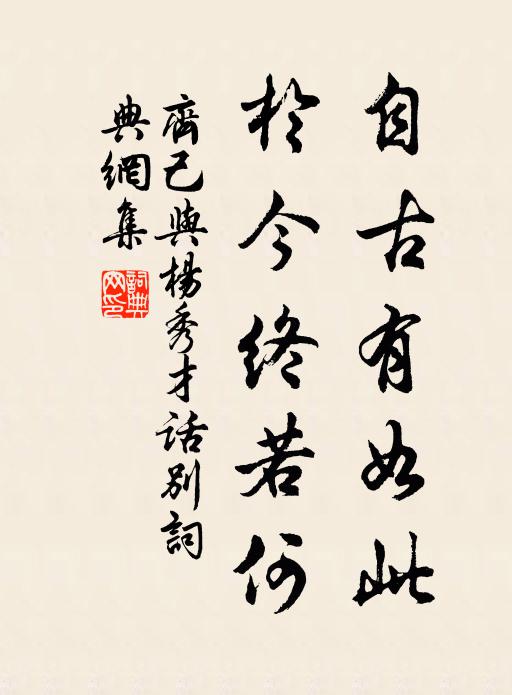 自古有如此
於今終若何
齊己與楊秀才話別詞
典網集
詞典網印